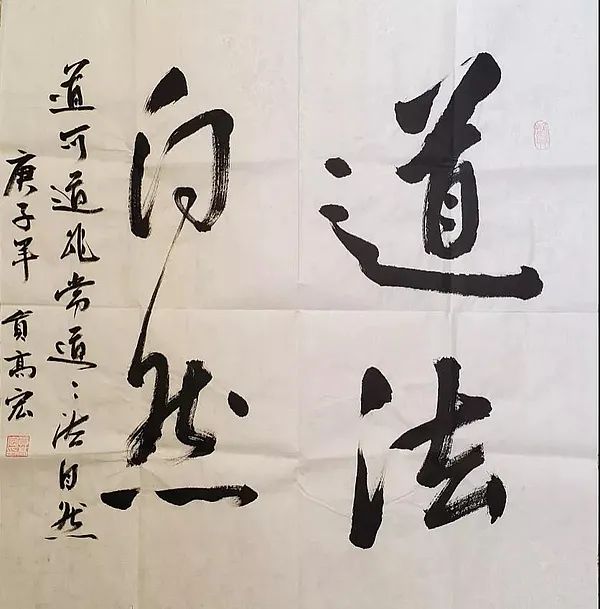 道法
自然
道可道非常道〻法自然
庚子年 貢高宏